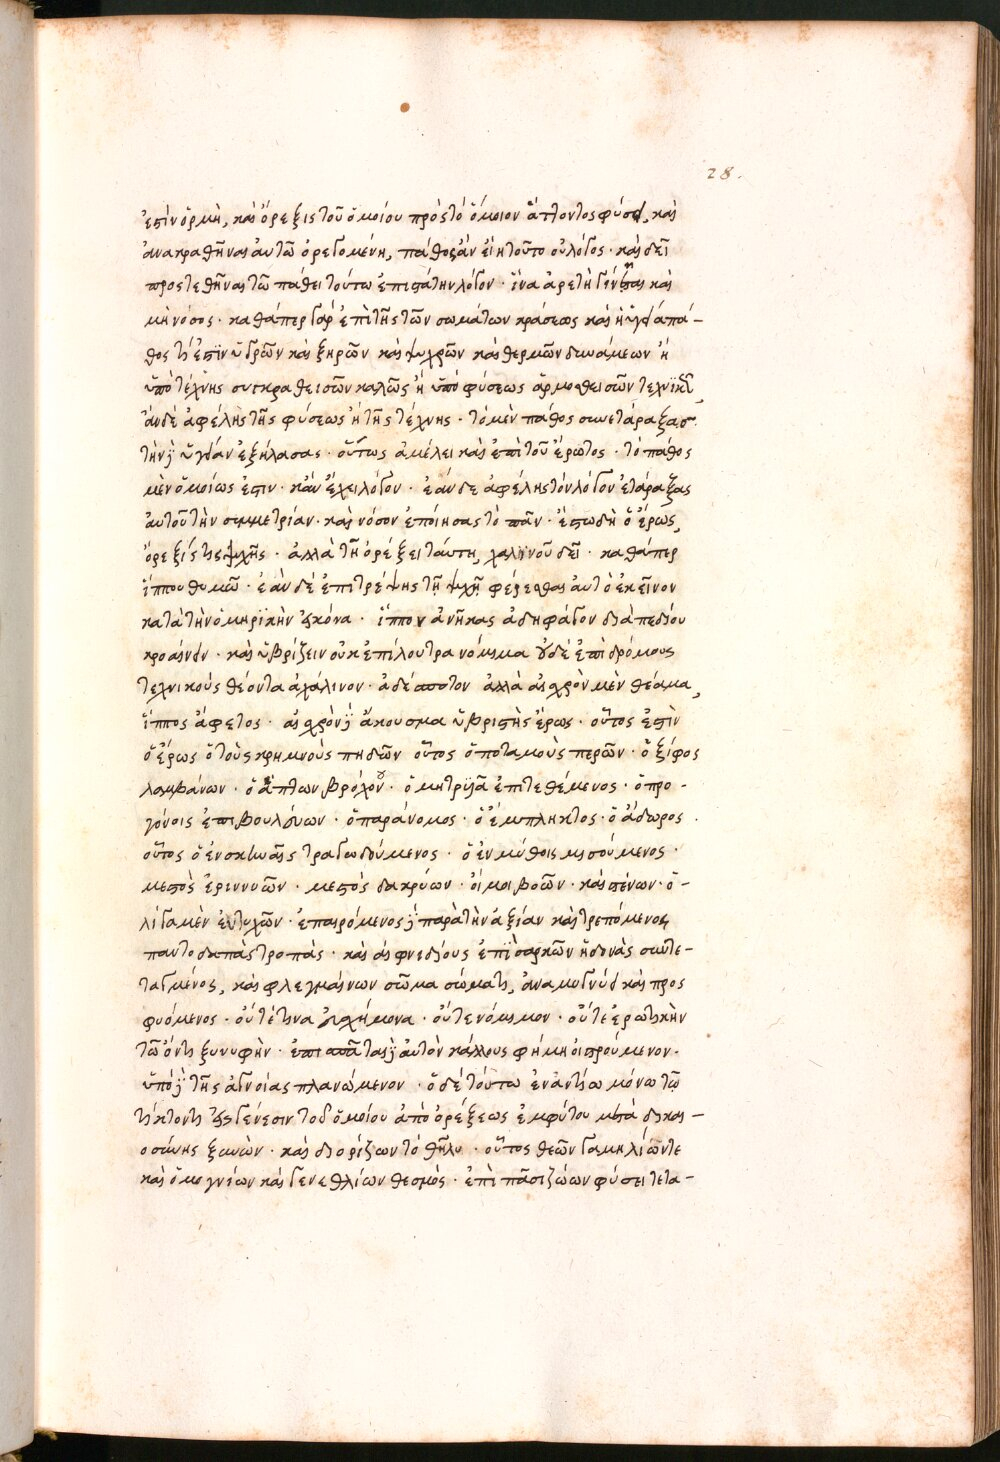 28.
ἐστὶν ὁρμὴ, καὶ ὄρεξις τοῦ ὁμοίου πρὸς τὸ ὅμοιον ἄττοντος φύσει, καὶ
ἀνακραθῆναι αὐτῶ ὀρεγομένη, πάθος ἂν εἴη τοῦτο οὐ λόγος· καὶ δεῖ
προστεθῆναι τῶ πάθει τούτω ἐπιστάτην λόγον· ἵνα ἀρετὴ γένηται καὶ
μὴ νόσος· καθάπερ γὰρ ἐπὶ τῆς τῶν σωμάτων κράσεως καὶ ἡ ὑγεία πά-
θος τί ἐστϊν ὑδρῶν καὶ ξηρῶν καὶ ψυχρῶν καὶ θερμῶν δυνάμεων ἢ
ὑπὸ τέχνης συγκραθεισῶν καλῶς ἢ ὑπὸ φύσεως ἁρμοσθεισῶν τεχνϊκῶς,
ἂν δὲ ἀφέλης τῆς φύσεως ἢ τῆς τέχνης· τὸ μὲν πάθος συνετάραξας
τὴν δὲ ὑγείαν ἐξήλασας· οὕτως ἀμέλει καὶ ἐπὶ τοῦ ἔρωτος· τὸ πάθος
μὲν ὁμοίως ἐστιν· κἂν ἔχει λόγον· ἐὰν δε ἀφέλης τὸν λόγον ἐτάραξας
αὐτοῦ τὴν συμμετρίαν· καὶ νόσον ἐποίησας τὸ πᾶν· ἔστω δὴ ὁ ἔρως,
ὄρεξίς τις ψυχῆς· ἀλλὰ τῆ ὀρέξει ταύτη, χαλινοῦ δεῖ· καθάπερ
ἵππου θυμῶ· ἐὰν δὲ ἐπιτρέψης τῆ ψυχῆ φέρεσθαι αὐτὸ ἐκεῖνον
κατὰ τὴν ὁμηρϊκὴν εἰκόνα· ἵππον ἀνῆκας ἀδηφάγον διὰ πεδίου
κροαίνειν· καὶ ὑβρίζειν οὐκ ἐπὶ λουτρα νόμιμα οὐδὲ ἐπὶ δρόμους
τεχνικοὺς θέοντα ἀχάλινον· ἀδέσποτον ἀλλὰ αἰσχρὸν μὲν θέαμα,
ἵππος ἄφετος· αἰσχρὸν δὲ ἄκουσμα ὑβριστὴς ἔρως· οὗτος ἐστὶν
ὁ ἔρως ὁ τοὺς κρημνοὺς πηδῶν οὗτος ὁ ποταμοὺς περῶν· ὁ ξίφος
λαμβάνων· ὁ ἅπτων βρόχου· ὁ μητρϊᾶ ἐπιτεθέμενος· ὁ προ-
γόνοις ἐπιβουλεύων· ὁ παράνομος· ὁ ἔμπληκτος· ὁ ἄδωρος
οὗτος ὁ ἐν σκηναῖς τραγωδούμενος· ὁ ἐν μύθοις μισούμενος·
μεστὸς ἐριννυῶν· μεστὸς δακρύων· οἴμοι βοῶν· καὶ στένων· ὀ-
λίγα μὲν εὐτυχῶν· ἐπαιρόμενος δὲ παρὰ τὴν ἀξίαν καὶ τρεπόμενος
παντοδαπὰς τροπὰς· καὶ αἰφνιδίους ἐπϊ σαρκῶν ἡδονὰς συντε-
ταγμένος, καὶ φλεγμαίνων σῶμα σώματι, ἀναμιγνύει καὶ προς
φυόμενος· οὔτέ τινα εὐσχήμονα· οὔτε νόμιμον· οὔτε ἐρωτικὴν
τῶ ὄντι ξυνυφὴν· ἐπισπᾶται δὲ αὐτὸν κάλλους φήμη οἰστρούμενον·
ὑπὸ δὲ τῆς ἀγνοίας πλανώμενον· ὁ δὲ τούτω ἐναντίω μόνω τῶ
τίκτοντι εἰς γένεσιν τοῦ ὁμοίου ἀπὸ ὀρέξεως ἐμφύτου μετὰ δικαι-
οσύνης ξυνὼν· καὶ διορίζων τὸ θῆλυ· οὗτος θεῶν γαμηλίων τε
καὶ ὁμογνίων καὶ γενεθλίων θεσμὸς· ἐπὶ πᾶσι ζώων φύσει τετα-